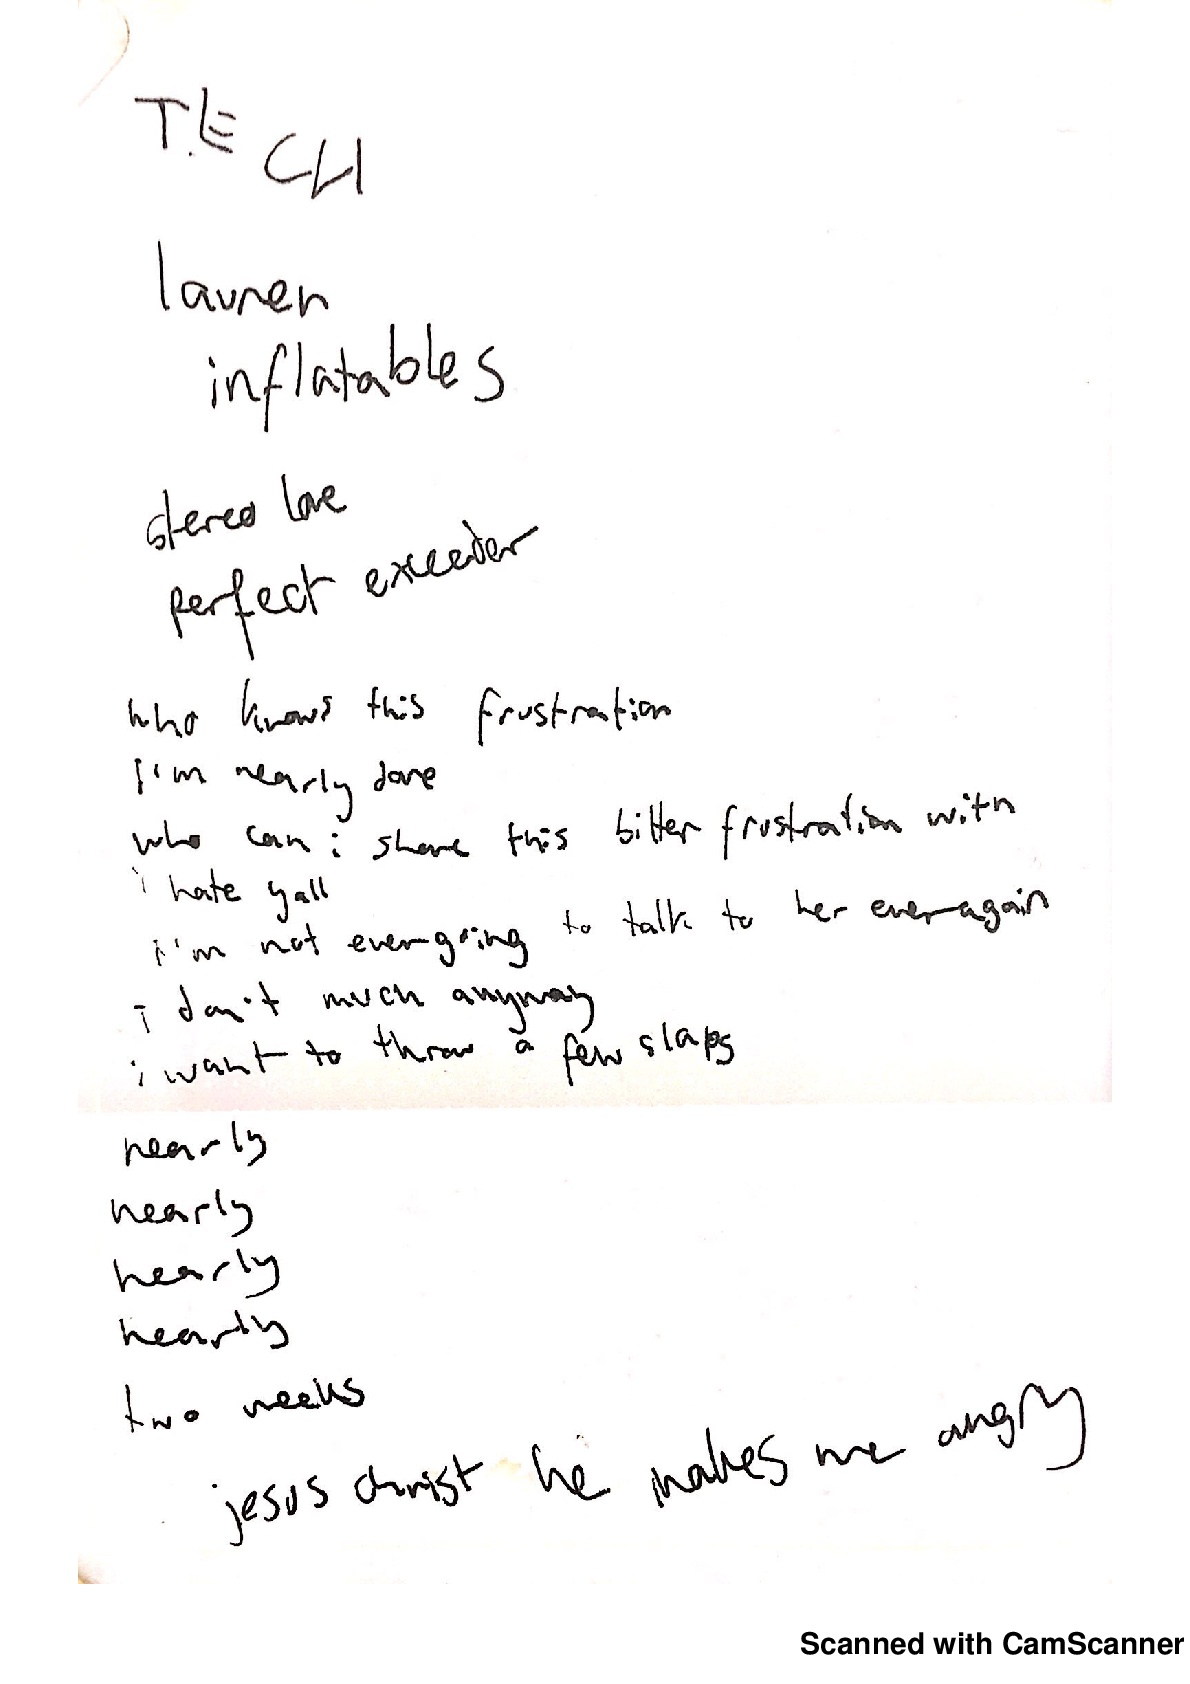 TECH
lauren
inflatables
stereo love
perfect exceeder
who knows this frustration
I'm nearly done
who can i share this bitter frustration with
i hate yall
i'm not ever going to talk to her ever again
i don't much anyway
i want to throw a few slaps
nearly
nearly
nearly
nearly
two weeks
jesus christ he makes me angry
Scanned with CamScanner